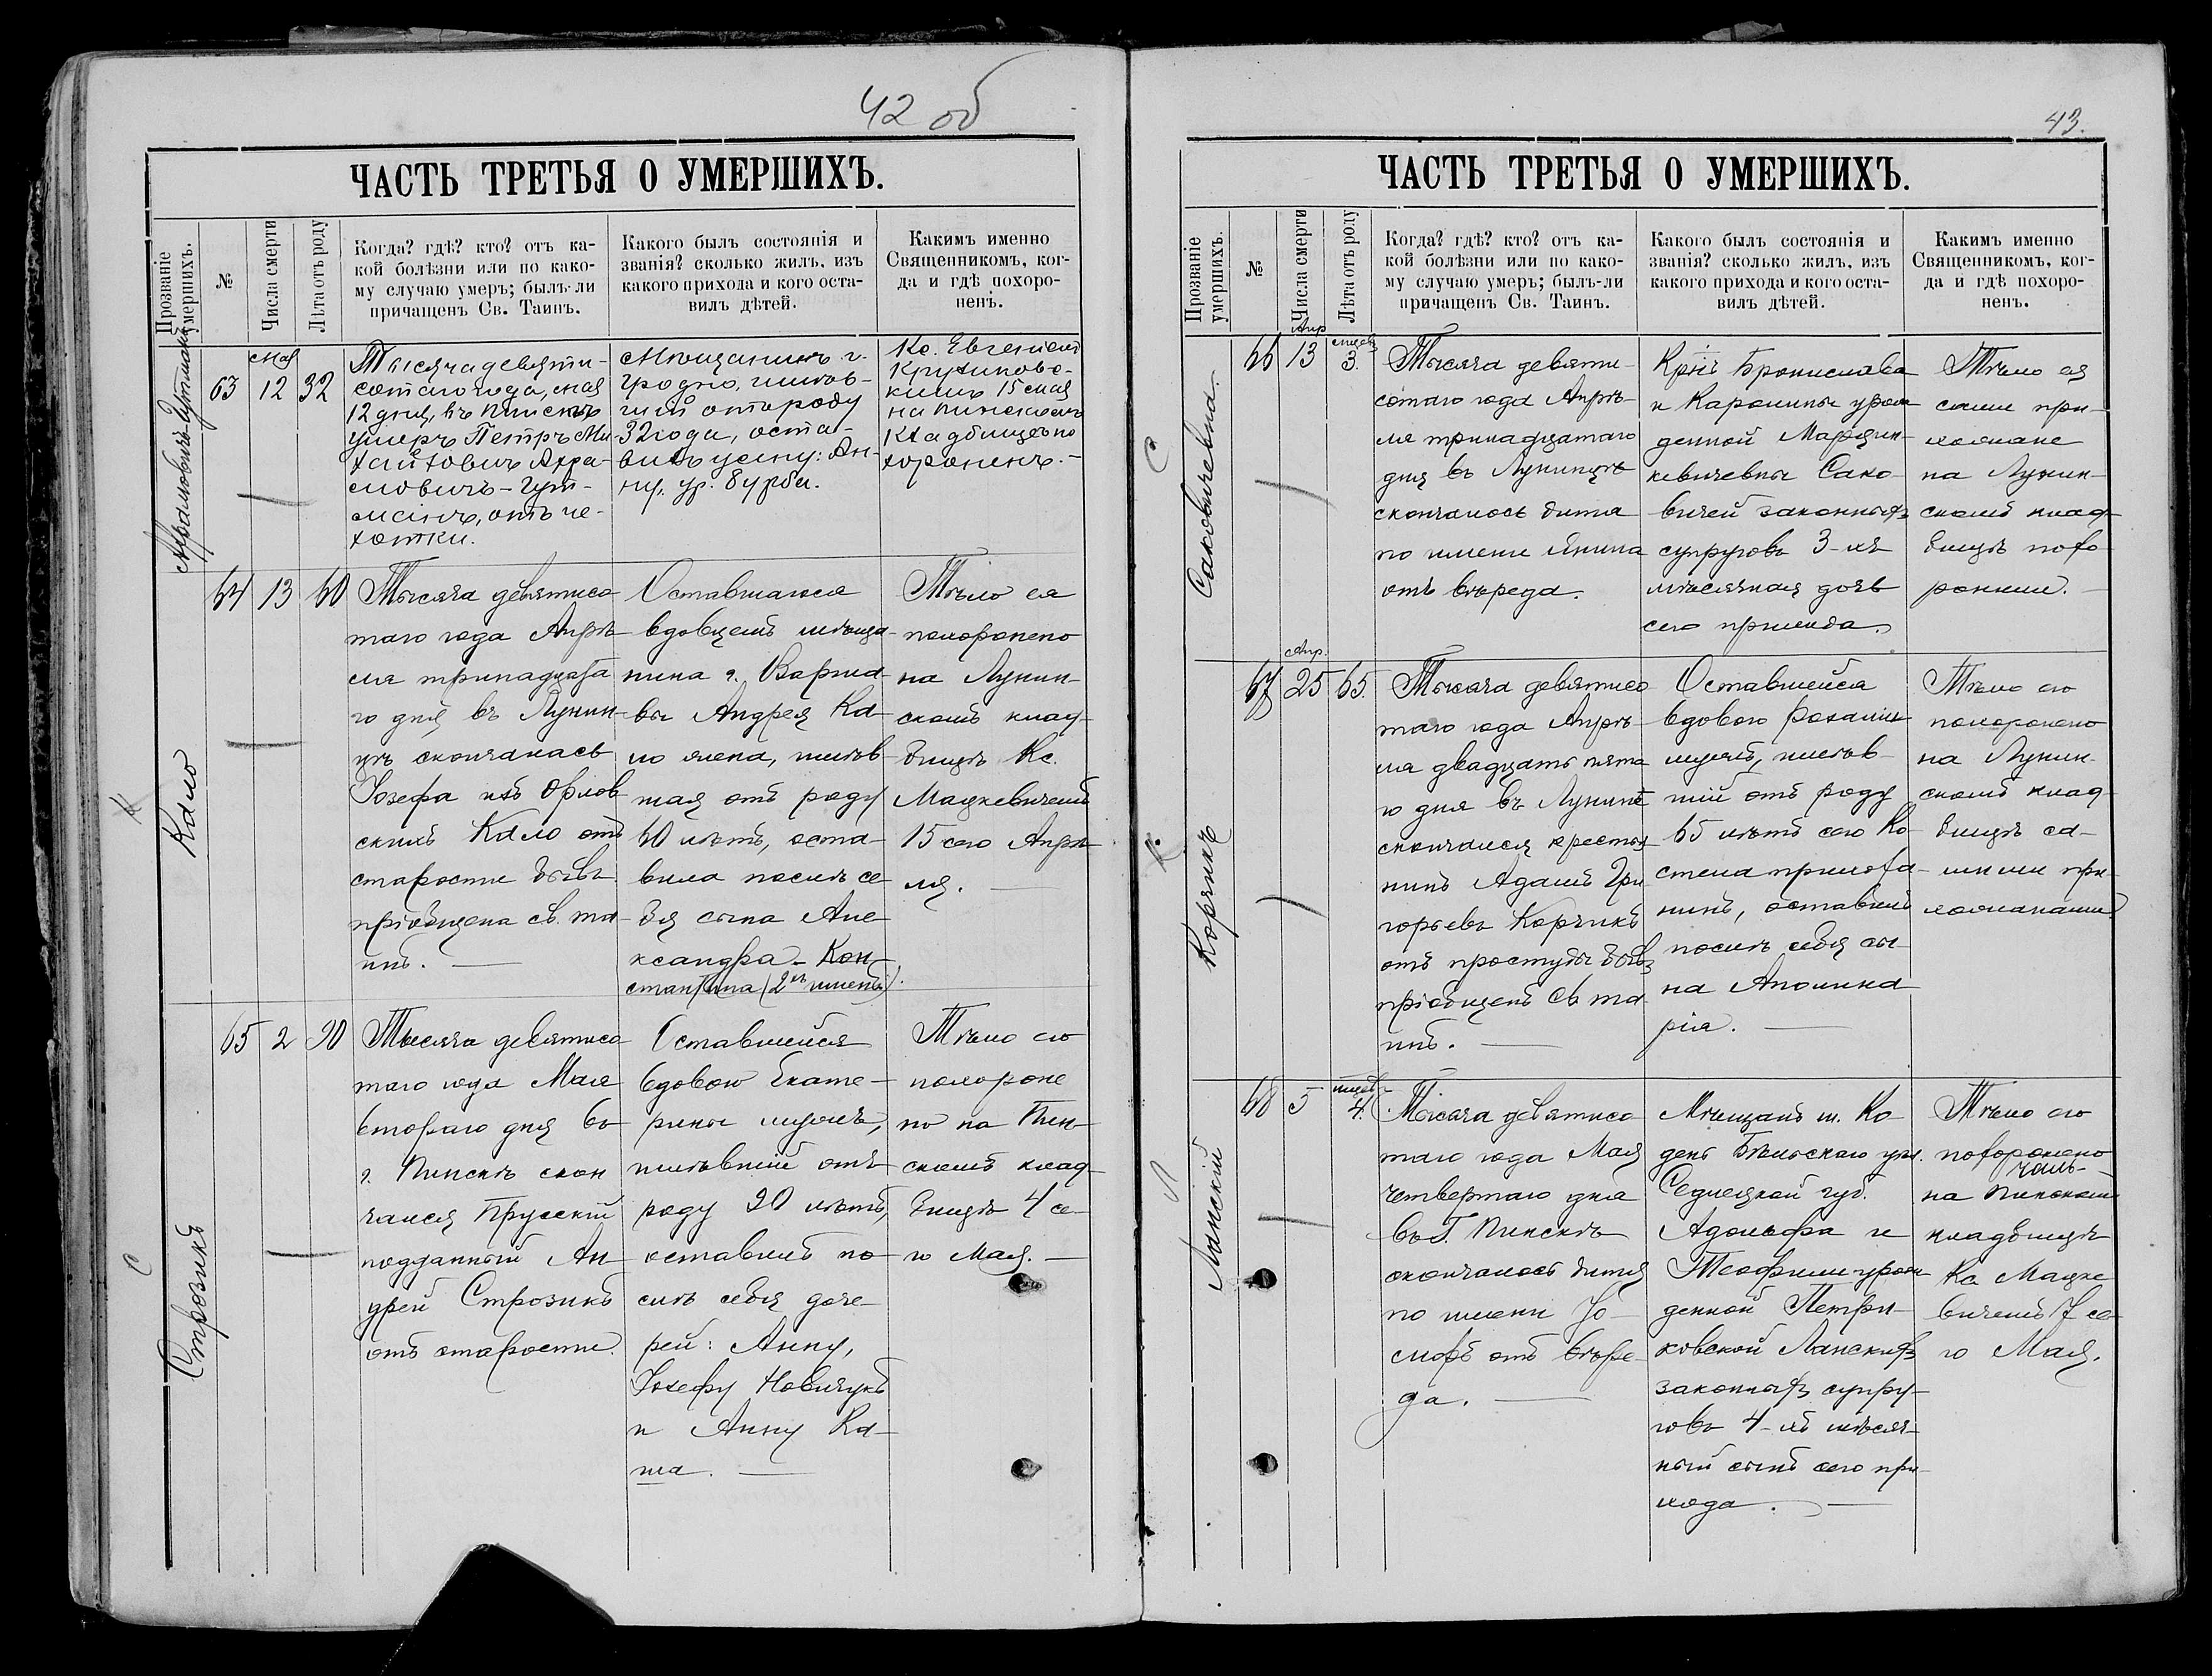 42 об
ЧАСТЬ ТРЕТЬЯ О УМЕРШИХЪ.
Прозваніе
умершихъ.
№
Числа смерти
Лѣта отъ роду
Когда? гдѣ? кто? отъ ка-
кой болѣзни или по како-
му случаю умеръ; былъ-ли
причащенъ Св. Таинъ.
Какого былъ состоянія и
званія? сколько жилъ, изъ
какого прихода и кого оста-
вилъ дѣтей.
Какимъ именно
Священникомъ, ког-
да и гдѣ похоро-
ненъ.
63
мая
12
32
Тысяча девяти-
сотаго года, мая
12 дня, въ Пинскѣ
умеръ Петръ Ми-
хайловичъ Ахра-
мовичъ-Гут-
манъ, отъ ча-
хотки.
Мѣщанинъ г.
Гродно, жив-
шій отъ роду
32 года, оста-
вилъ жену: Ан-
ну, ур. Бурба.
Кс. Евгеніемъ
Крупинов-
кимъ 15 мая
на Пинскомъ
кладбищѣ по
хороненъ.-
К
Кало
64
13
60
Тысяча девятисо
таго года Апрѣ
ля тринадцата
го дня въ Лунин-
цѣ скончалась
Іозефа изъ Орлов
скихъ Кало отъ
старости бывъ
пріобщена св. та
инъ. —
Оставшаяся
вдовцемъ мѣща
нина г. Варша-
вы Андрея Ка-
ло жена, жив
шая отъ роду
60 лѣтъ, оста-
вила послѣ се
бя сына Але
ксандра-Кон-
стантина (2хъ именъ).
Тѣло ея
похоронено
на Лунин-
скомъ клад-
бищѣ Кс.
Мацкевичемъ
15 сего Апрѣ
ля. —
С
Строзикъ
65
2
90
Тысяча девятисо
таго года Мая
втораго дня въ
г. Пинскѣ скон
чался Прусскій
подданный Ан
дрей Строзикъ
отъ старости.
Оставшейся
вдовою Екате-
рины мужъ,
жившій отъ
роду 90 лѣтъ,
оставилъ по
слѣ себя доче-
рей: Анну,
Іозефу Новичукъ
и Анну Ка-
ша. —
Тѣло его
похороне
но на Пин-
скомъ клад-
бищѣ 4 се-
го Мая. —
43.
ЧАСТЬ ТРЕТЬЯ О УМЕРШИХЪ.
Прозваніе
умершихъ.
№
Числа смерти
Лѣта отъ роду
Когда? гдѣ? кто? отъ ка-
кой болѣзни или по како-
му случаю умеръ; былъ-ли
причащенъ Св. Таинъ.
Какого былъ состоянія и
званія? сколько жилъ, изъ
какого прихода и кого оста-
вилъ дѣтей.
Какимъ именно
Священникомъ, ког-
да и гдѣ похоро-
ненъ.
С
Саковичевна.
66
Апр
13
мѣсяц
3.
Тысяча девяти-
сотаго года Апрѣ-
ля тринадцатаго
дня въ Лунинцѣ
скончалось дитя
по имени Янина
отъ вѣреда.
Крнъ Бронислава
и Каролины урож
денной Марцин-
кевичевны Сако-
вичей законныхъ
супруговъ 3-хъ
мѣсячная дочь
сего прихода.
Тѣло ея
сами при-
хожане
на Лунин-
скомъ клад-
бищѣ похо
ронили. —
К.
Корчикъ
67
Апр.
25
65.
Тысяча девятисо
таго года Апрѣ-
ля двадцать пята
го дня въ Лунинѣ
скончался крестья
нинъ Адамъ Гри
горьевъ Корчикъ
отъ простуды бывъ
пріобщенъ св та
инъ. —
Оставшейся
вдовою Розаліи
мужъ, жив-
шій отъ роду
65 лѣтъ сего Ко-
стела прихожа-
нинъ, оставилъ
послѣ себя сы
на Аполина
рія. —
Тѣло его
похоронено
на Лунин-
скомъ клад-
бищѣ са-
мими при-
хожанами.
Л
Ланскій
68
5
мѣсяц
4.
Тысяча девятисо
таго года Мая
четвертаго дня
въ г. Пинскѣ
скончалось дитя
по имени Іо-
сифъ отъ вѣре-
да. —
Мѣщанъ м. Ко
день Бѣльскаго уѣз.
Седлецкой губ.
Адольфа и
Теофили урож
денной Петри-
ковской Ланскихъ
законныхъ супру-
говъ 4-хъ мѣсяч-
ный сынъ сего при-
хода. —
Тѣло его
похоронено
на Пинском
кладбищѣ
Кс Мацке
вичемъ 7 се
го Мая.